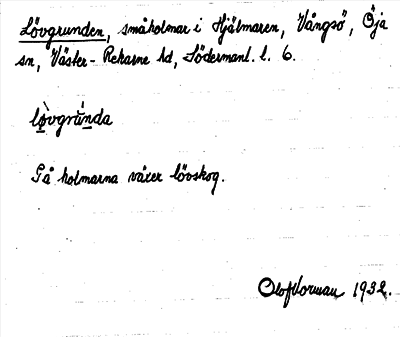 Lövgrunden, småholmar i Hjälmaren, Vångsö, Öja
sn, Väster-Rekarne hd, Södermanl. l. 6.
lòvgrúnda
På holmarna växer lövskog.
Olof Norman 1932.